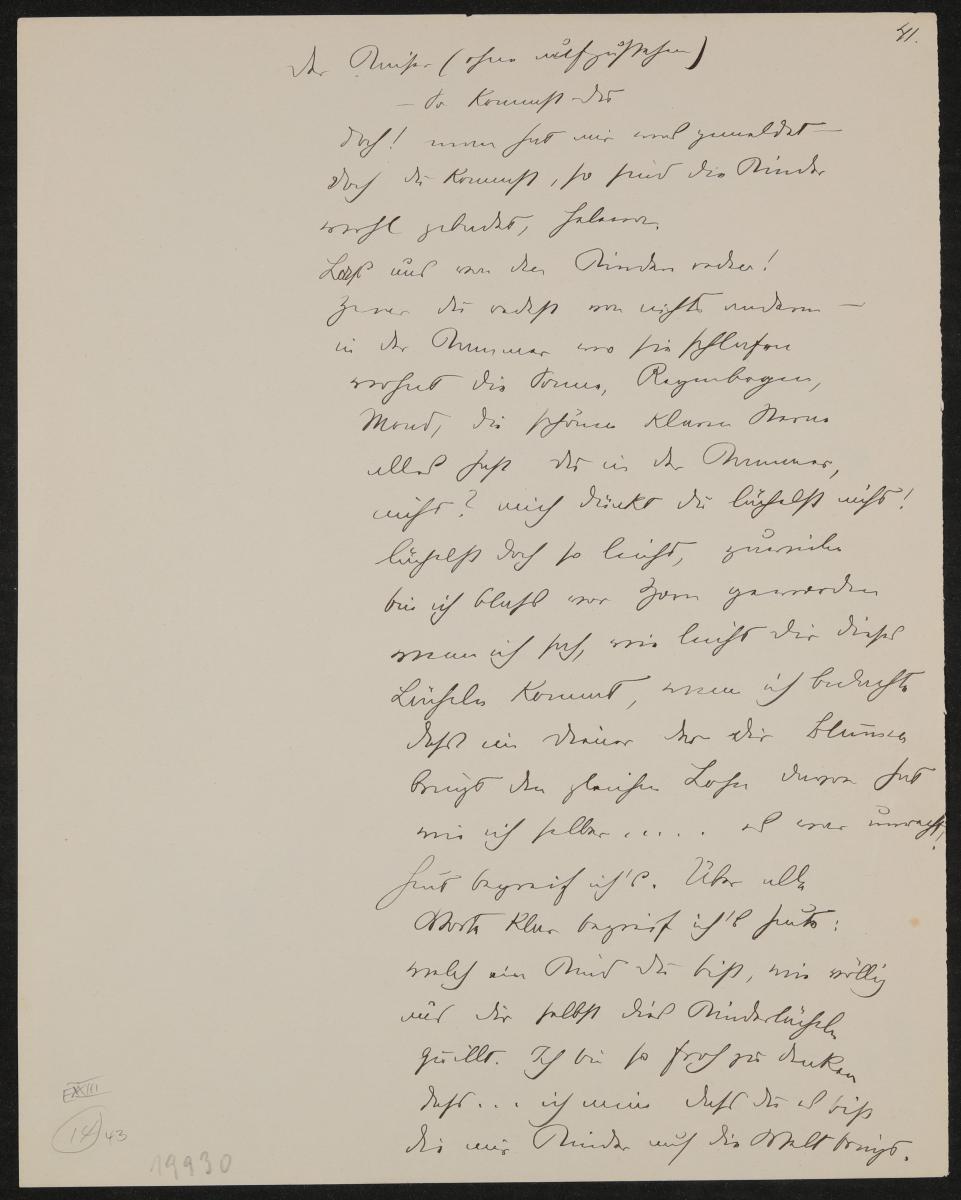 41.
Der Kaiser (ohne aufzustehen)
— So kommst du
doch! man hat mir was gemeldet —
doch du kommst, so sind die Kinder
wohl gebadet, Helene.
Lass uns von den Kindern reden!
Zwar du redest von nichts anderm —
in der Kammer wo sie schlafen
wohnt die Sonne, Regenbogen,
Mond, die schönen klaren Sterne
alles hast du in der Kammer,
nicht? mich dünkt du lächelst nicht!
lächelst doch so leicht, zuweilen
bin ich blass vor Zorn geworden
wenn ich sah, wie leicht dir dieses
Lächeln kommt, wenn ich bedachte
dass ein Diener der dir Blumen
bringt den gleichen Lohn davon hat
wie ich selber..... es war unrecht!
Heut begreif ich's. Über alle
Worte klar begreif ich's heute:
welch ein Kind du bist, wie völlig
aus dir selbst dies Kinderlächeln
quillt. Ich bin so froh zu denken
dass... ich meine dass du es bist
die mir Kinder auf die Welt bringt.
XXIII
14 43
19930